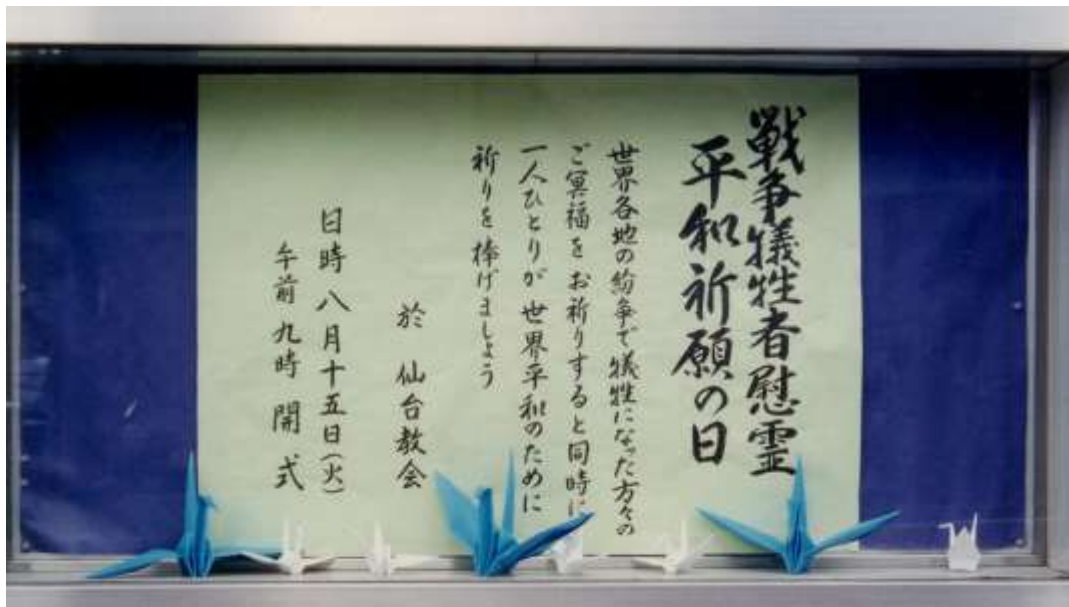 戦争犠牲者慰霊
平和祈願の日
世界各地の紛争で犠牲になった方々の
ご冥福をお祈りすると同時に
一人ひとりが世界平和のために
祈りを捧げましょう
於 仙台教会
日時 八月十五日(火)
午前 九時 開式